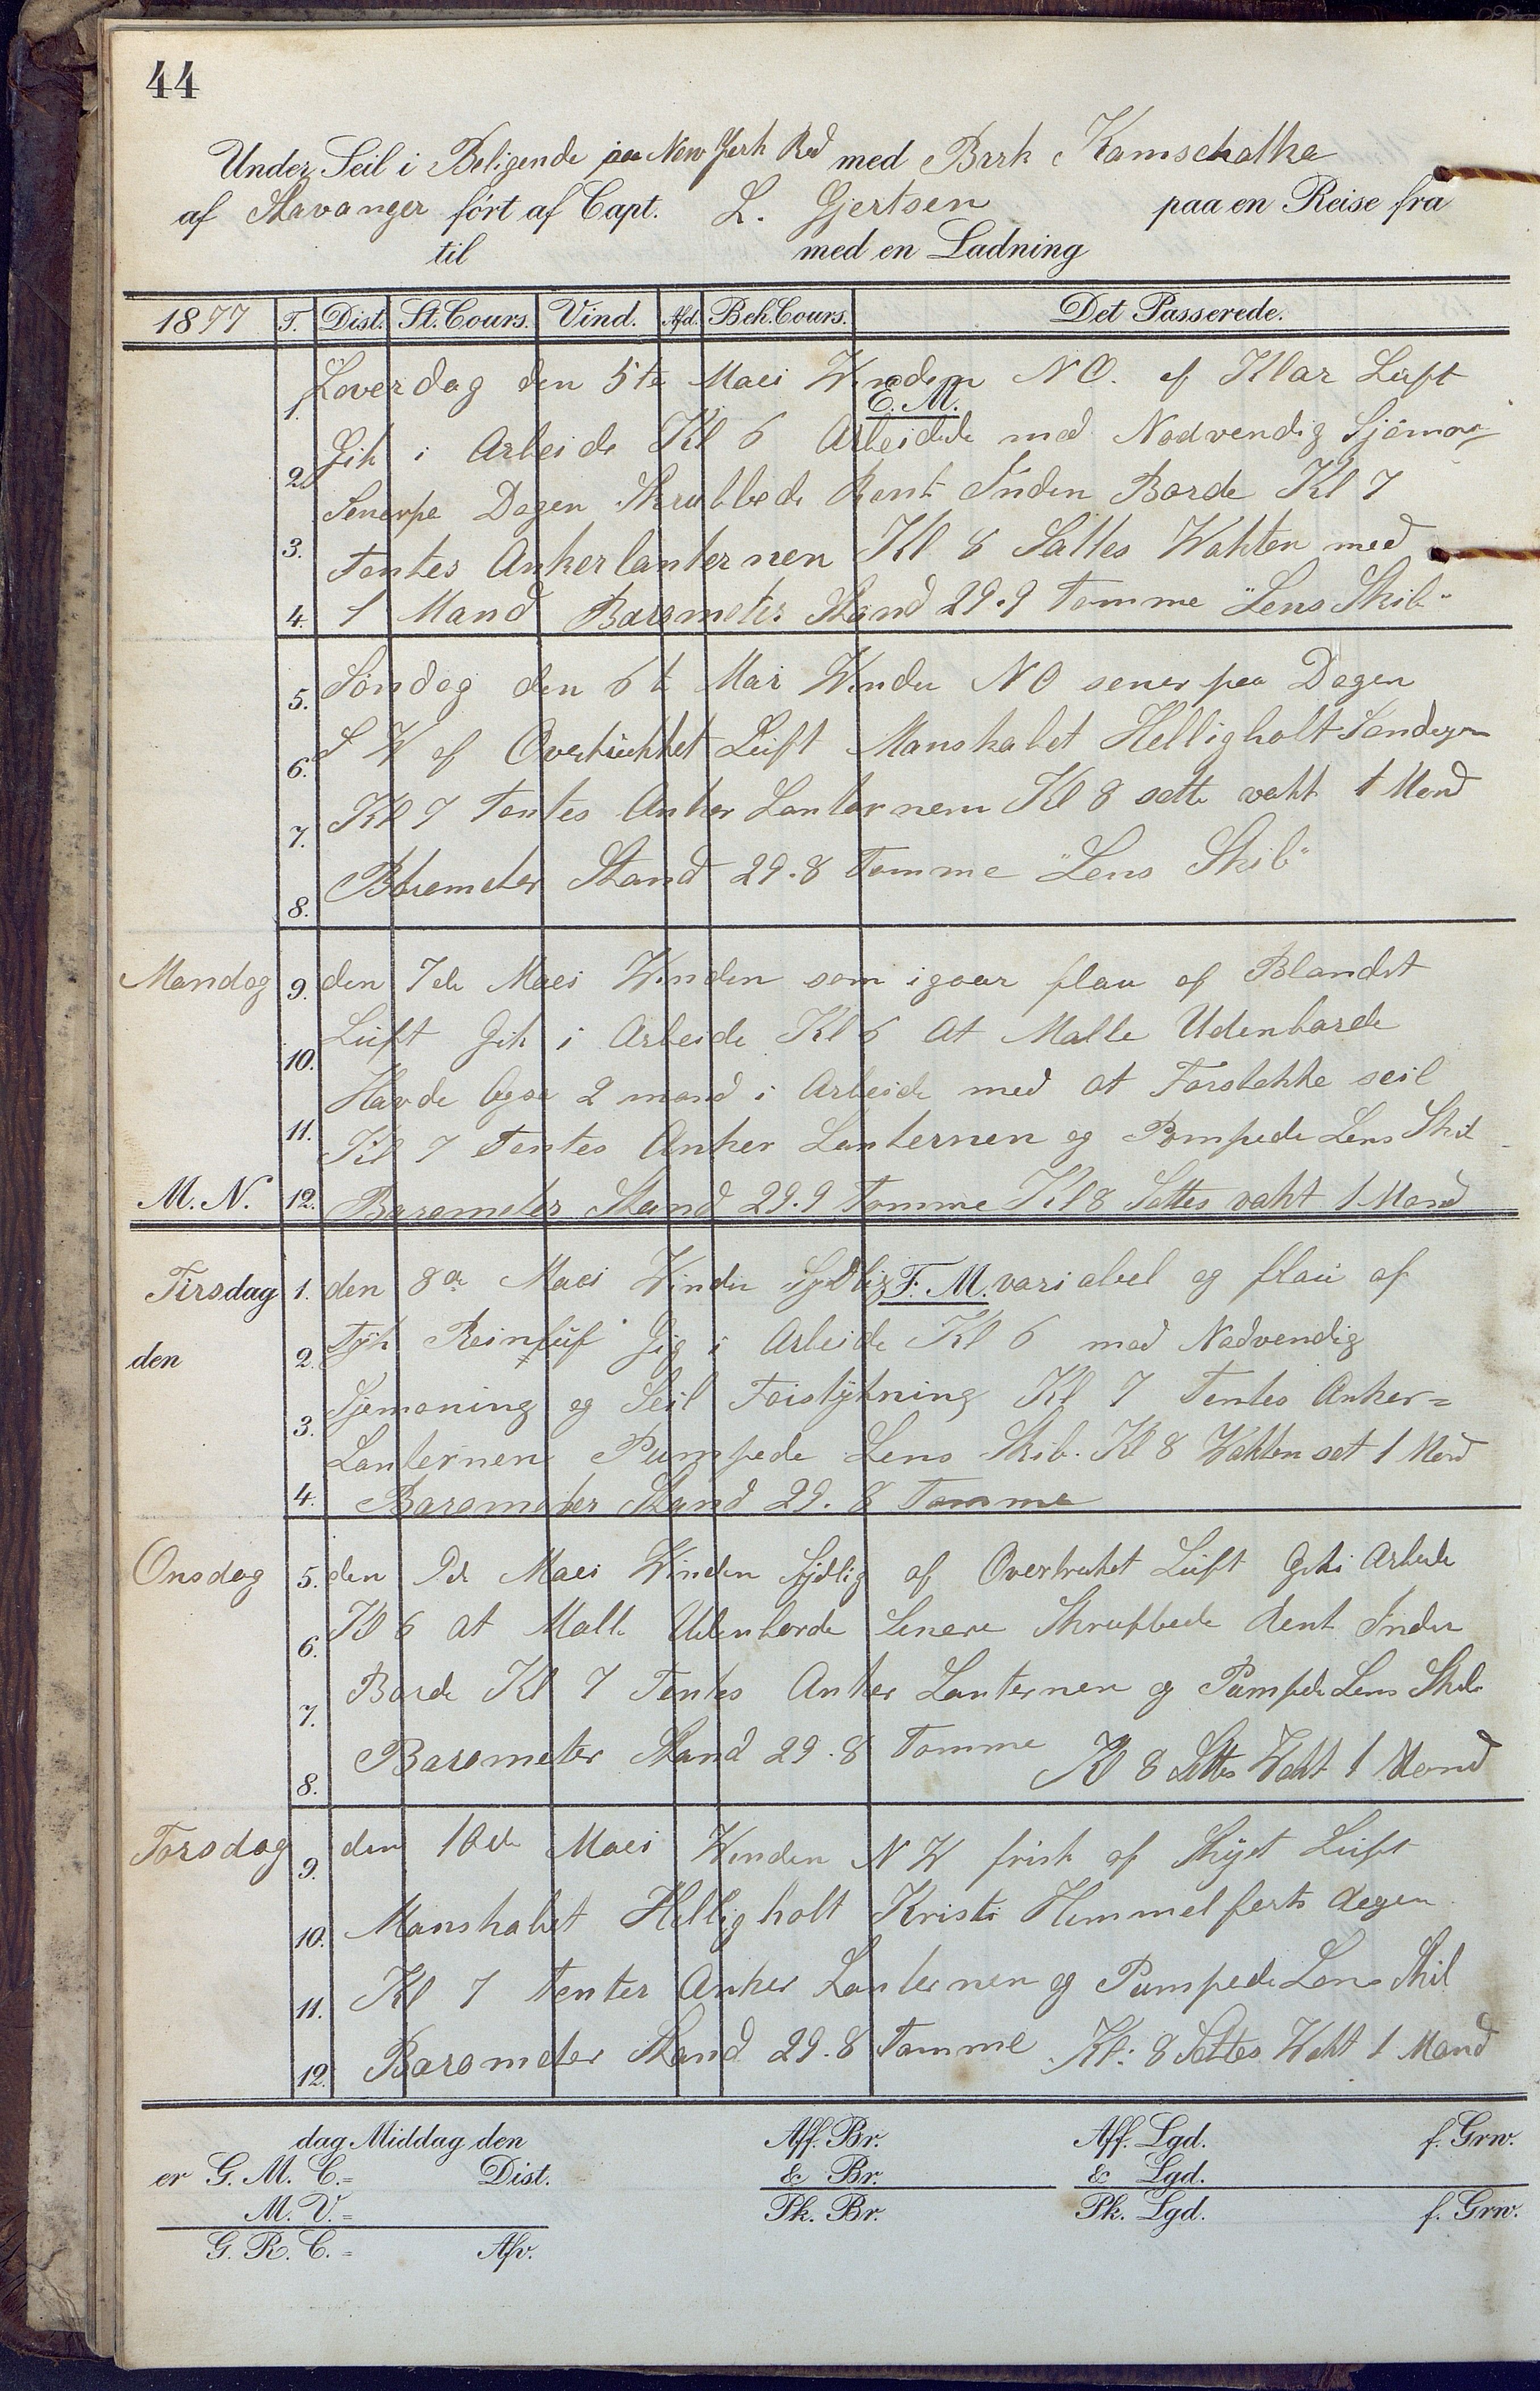 44
Under Seil i Beligende paa New York Red med Bark Kamschatka
af Stavanger ført af Capt. L. Gjertsen paa en Reise fra
til med en Ladning
1877 T. Dist. St. Cours. Vind. Afd. Beh. Cours. Det Passerede.
E. M.
1. Löverdag den 5te Maei Winden NO. af Klar Luft
2. Gik i Arbeide Kl 6 Arbeidede med Nødvendig
Senerpe Dagen Skrubbede Rent Inden Borde Kl 7
3. Tentes Ankerlanternen Kl 8 Sattes Wakten med
4. 1 Mand Barometer Stand 29.9 Tomme "Lens Skib"
5. Søndag den 6t Mai Winden NO sener paa Dagen
6. S W af Overtrukket Luft Manskabet Helligholt Søndagen
7. Kl 7 Tentes Anker Lanternen Kl 8 satte vakt 1 Mand
8. Barometer Stand 29.8 Tomme "Lens Skib"
Mandag 9. den 7de Maei Winden som igaar flau af Blandet
10. Luft Gik i Arbeide Kl 6 At Malle Udenborde
Havde Ogsa 2 mand i Arbeide med at seil
11. Kl 7 Tentes Anker Lanternen og Pompede Lens Skib
M. N. 12. Barometer Stand 29.9 Tomme Kl 8 Sattes vakt 1 Mand
F. M.
Tirsdag 1. den 8de Maei Winden Sydlig variabel og flau af
den 2. Tyk Gig i Arbeide Kl 6 med Nødvendig
3. Sjømaning og Seil Kl 7 Tentes Anker=
Lanternen Pumpede Lens Skib. Kl 8 Wakten sat 1 Mand
4. Barometer Stand 29.8 Tomme
Onsdag 5. den 9de Maei Winden Sydlig af Overtruket Luft Gik i Arbeide
6. Kl 6 at Malle Udenborde Senere Skrubbede Rent Inden
7. Borde Kl 7 Tentes Anker Lanternen og Pumpede Lens Skib
8. Barometer Stand 29.8 Tomme Kl 8 Sattes Wakt 1 Mand
Torsdag 9. den 10de Maei Winden N W frisk af Skyet Luft
10. Manskabet Helligholt Kristi Himmelferts dagen
11. Kl 7 Tentes Anker Lanternen og Pumpede Lens Skib
12. Barometer Stand 29.8 Tomme Kl: 8 Sattes Wakt 1 Mand
dag Middag den Aff. Br. Aff. Lgd. f. Grw.
er G. M. C.= Dist. & Br. & Lgd.
M. V.= Pk. Br. Pk. Lgd. f. Grw.
G. R. C.= Afv.